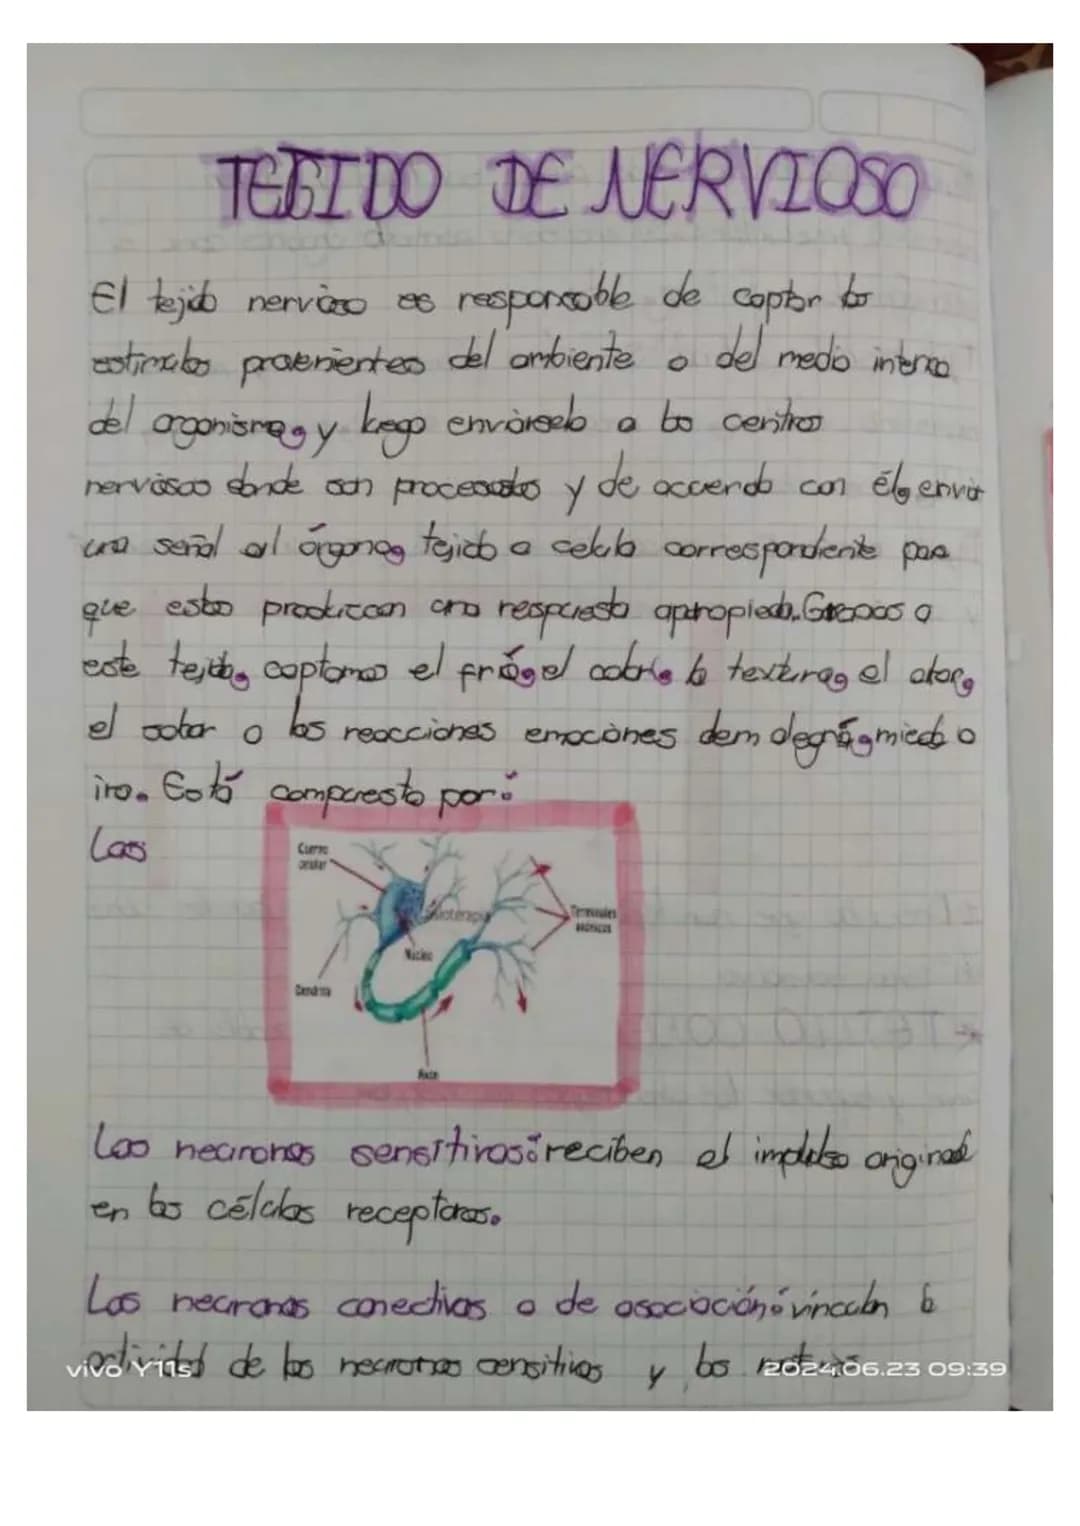 TEGIDO DE NERVIOSO
El tejido nervioso es responsable de captar los
estimulos provenientes del ambiente o del medio interno
del organismo, y luego enviárselo a los centros
nerviosos donde son procesados y de acuerdo con él, envia
una señal al órgano, tejido o celula correspondiente para
que estos produzcan una respuesta apropiada. Gracias a
este tejido, captamos el frío, el calor, la textura, el olor,
el sabor o las reacciones emociones de alegría, miedo o
ira. Está compuesto por:
Las
Cuerpo
celular
fisioterapia
Terminales
axónicos
Núcleo
Dendrita
Axón
Las neuronas sensitivas: reciben el impulso originado
en las células receptoras.
Las neuronas conectivas o de asociación: vinculan la
actividad de las neuronas sensitivas y las
vivo Y11s
2024.06.23 09:39